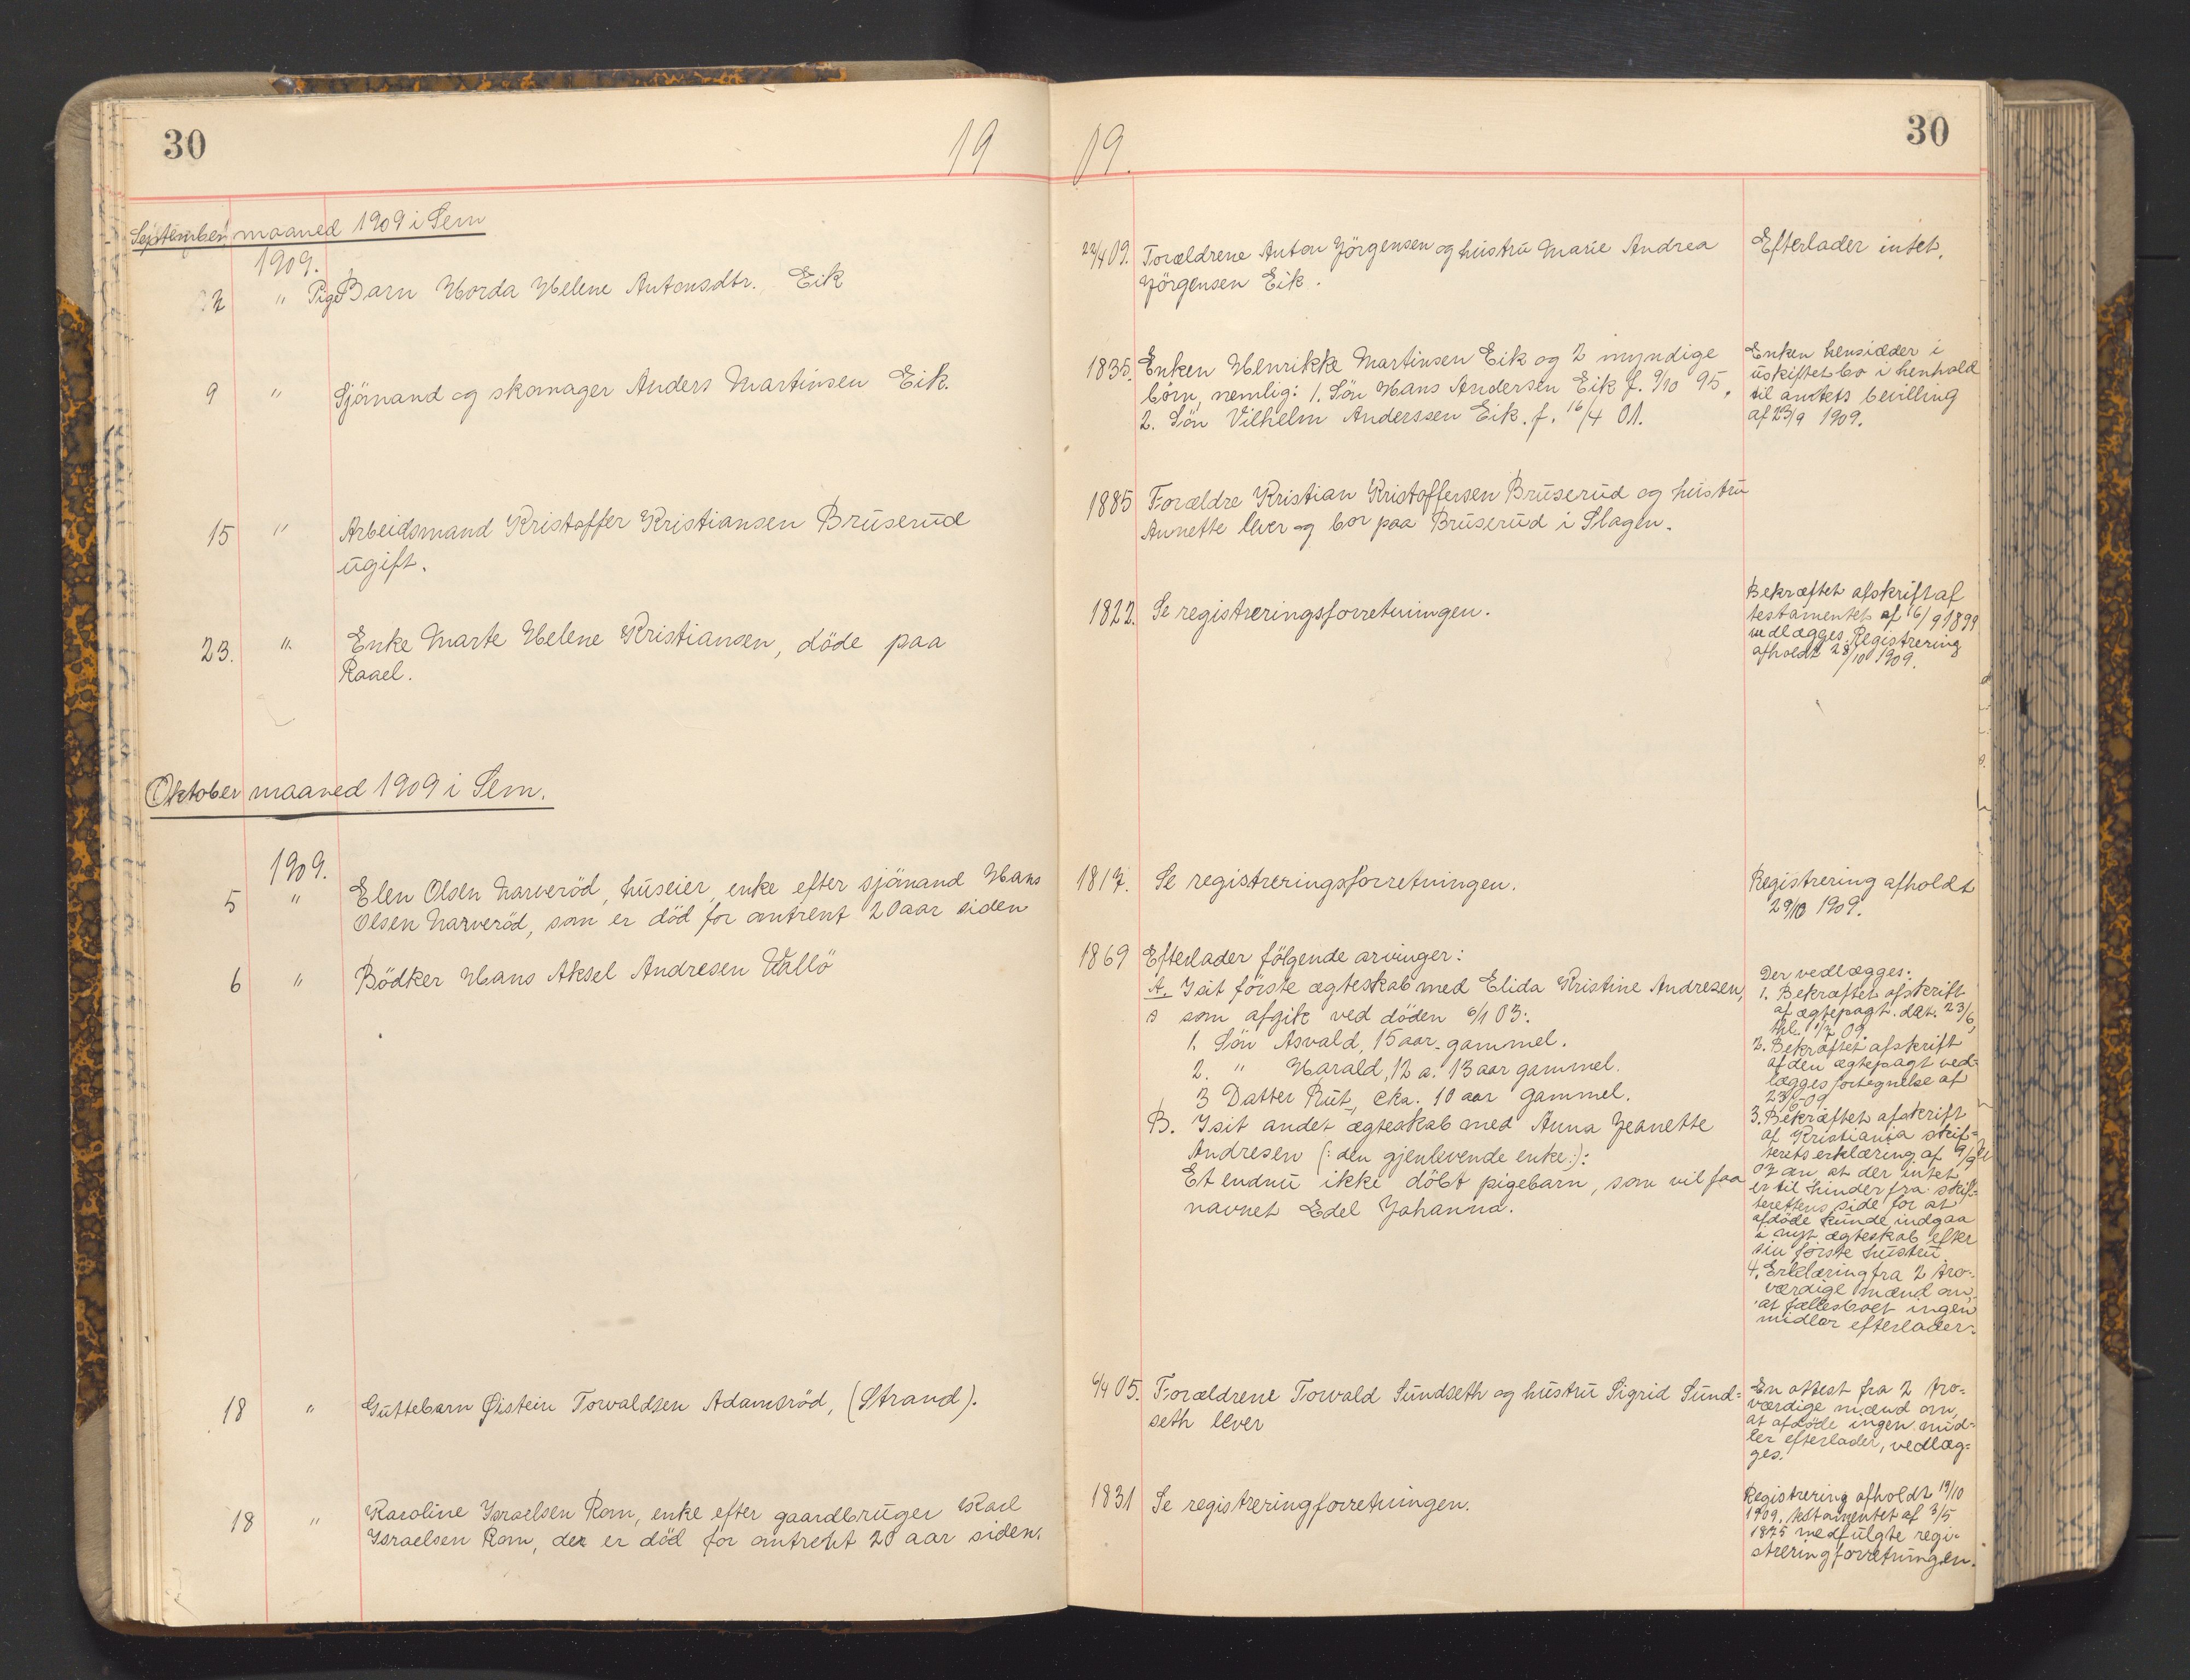 30
19
September maaned 1909 i Sem
1909.
" Pige Barn Horda Helene Antonsdtr. Eik
9 " Sjömand og skomager Anders Martinsen Eik.
15 " Arbeidsmand Kristoffer Kristiansen Bruserud
ugift.
23. " Enke Marte Helene Kristiansen, döde paa
Raael.
Oktober maaned 1909 i Sem.
1909.
5 " Elen Olsen Narveröd, huseier, enke efter sjömand Hans
Olsen Narveröd, som er död for omtrent 20 aar siden
6 " Bödker Hans Aksel Andresen Vallö
18 " Guttebarn Øistein Torvaldsen Adamsröd, (Strand).
18 " Karoline Israelsen Rom, enke efter gaardbruger Karl
Israelsen Rom, der er död for omtrent 20 aar siden.
09.
30
22/4 09. Forældrene Anton Jörgensen og hustru Marie Andrea
Jörgensen Eik.
Efterlader intet.
1835. Enken Henrikke Martinsen Eik og 2 myndige
börn, nemlig: 1. Sön Hans Andersen Eik f. 9/10 95,
2. Sön Vilhelm Anderssen Eik. f. 16/4 01.
Enken hensidder i
uskiftet bo i henhold
til amtets bevilling
af 23/9 1909.
1885 Forældre Kristian Kristoffersen Bruserud og hustru
Annette lever og bor paa Bruserud i Slagen.
1822. Se registreringsforretningen.
Bekræftet afskrift af
testamentet af 16/9 1899
vedlægges. Registrering
afholdt 28/10 1909.
1817. Se registreringsforretningen.
Registrering afholdt
29/10 1909.
1869 Efterlader fölgende arvinger:
A. I sit förste ægteskab med Elida Kristine Andresen,
som afgik ved döden 6/1 03:
1. Sön Asvald, 15 aar gammel.
2. " Harald, 12 a. 13 aar gammel.
3 Datter Rut, cka. 10 aar gammel.
B. I sit andet ægteskab med Anna Jeanette
Andresen (: den gjenlevende enke:):
Et endnu ikke döbt pigebarn, som vil faa
navnet Edel Johanna.
Der vedlægges:
1. Bekræftet afskrift
af ægtepagt. dat. 23/6,
thl. 1/7 09.
2. Bekræftet afskrift
af den ægtepagt ved-
lægges fortegnelse af
23/6-09
3. Bekræftet afskrift
af Kristiania skif-
terets erklæring af 9/9
07 om, at der intet
er til hinder fra skif-
terettens side for at
afdöde kunde indgaa
i nyt ægteskab efter
sin förste hustru.
4. Erklæring fra 2 tro-
værdige mænd om,
at fællesboet ingen
midler efterlader.
6/4 05. Forældrene Torvald Sundseth og hustru Sigrid Sund-
seth lever
En attest fra 2 tro-
værdige mænd om,
at afdöde ingen mid-
ler efterlader, vedlæg-
ges.
1831 Se registreringforretningen.
Registrering afholdt 19/10
1909, testamentet af 3/5
1875 medfulgte regi-
streringforretningen.